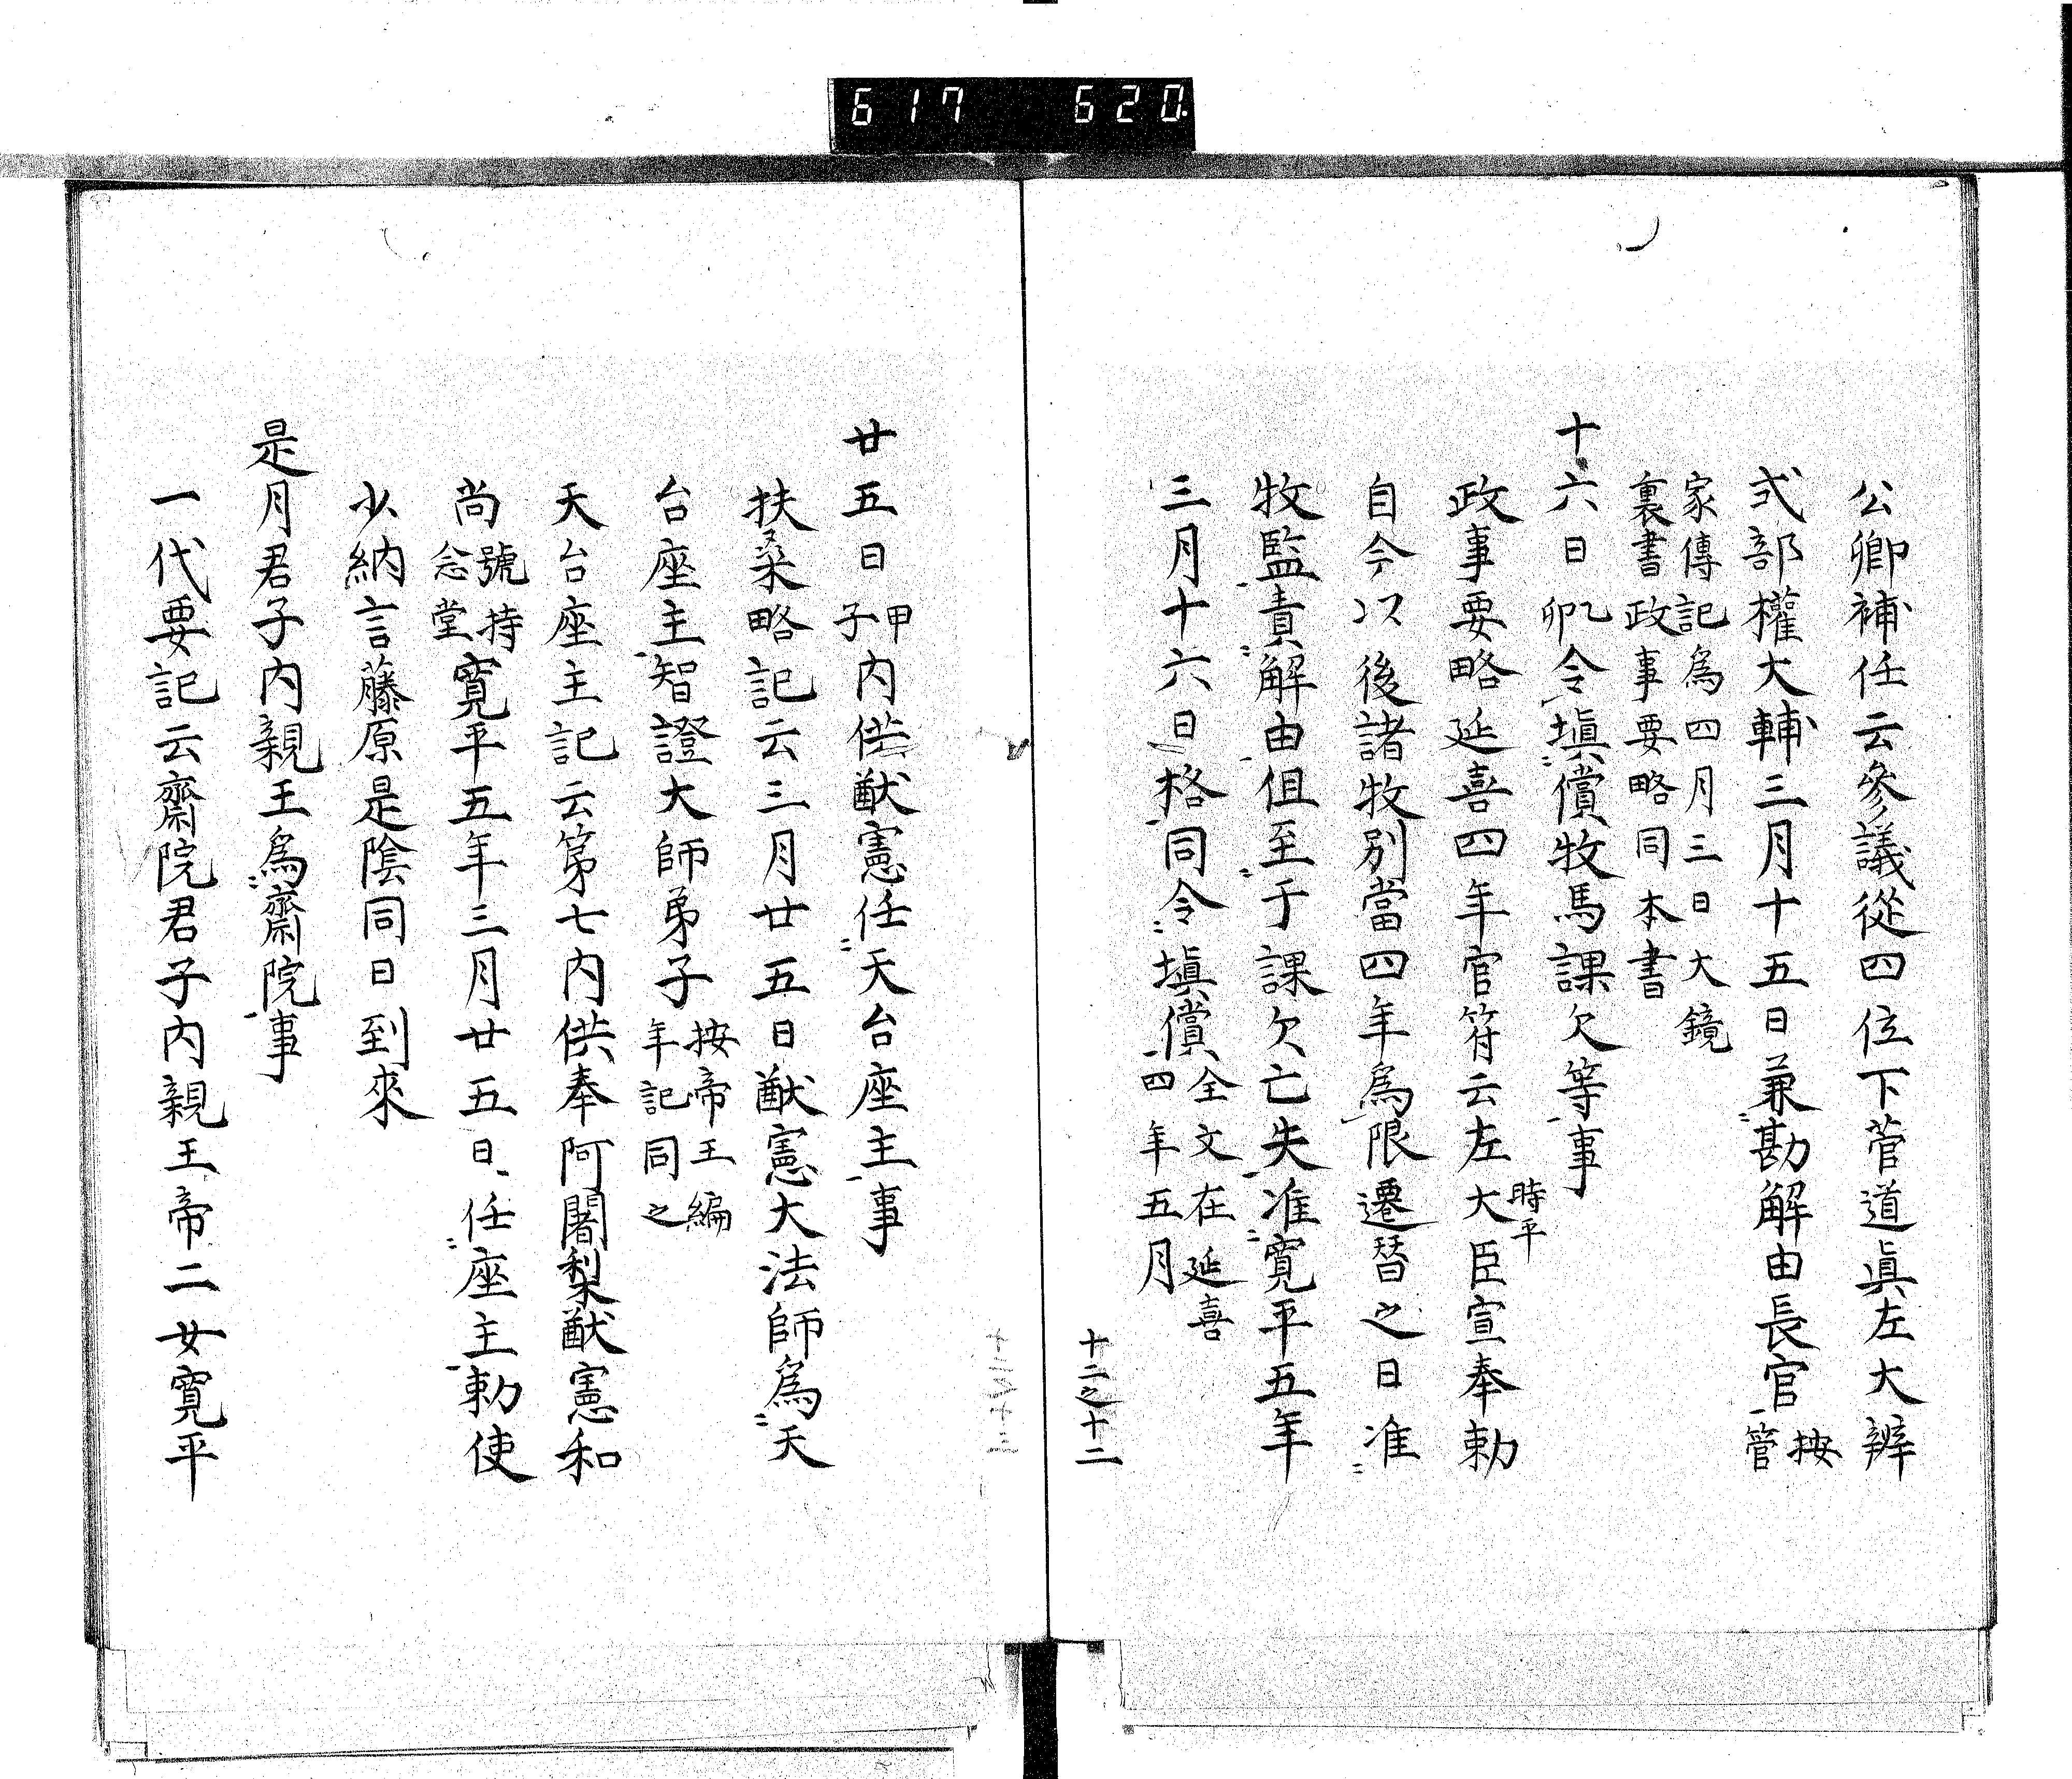 617 620
公卿補任云參議從四位下菅道眞左大辨
式部權大輔三月十五日兼勘解由長官
按
管
家傳記爲四月三日大鏡
裏書政事要略同本書
十六日
乙
卯
令塡償牧馬課欠等事
政事要略延喜四年官符云左大臣宣奉勅
時平
自今以後諸牧別當四年爲限遷替之日准
牧監責解由但至于課欠亡失准寛平五年
三月十六日格同令塡償
全文在延喜
四年五月
十二之十二
廿五日
甲
子
内供猷憲任天台座主事
扶桑略記云三月廿五日猷憲大法師爲天
台座主智證大師弟子
按帝王編
年記同之
天台座主記云第七内供奉阿闍梨猷憲和
尚
號持
念堂
寛平五年三月廿五日任座主勅使
少納言藤原是陰同日到來
是月君子内親王爲齋院事
一代要記云齋院君子内親王帝二女寛平